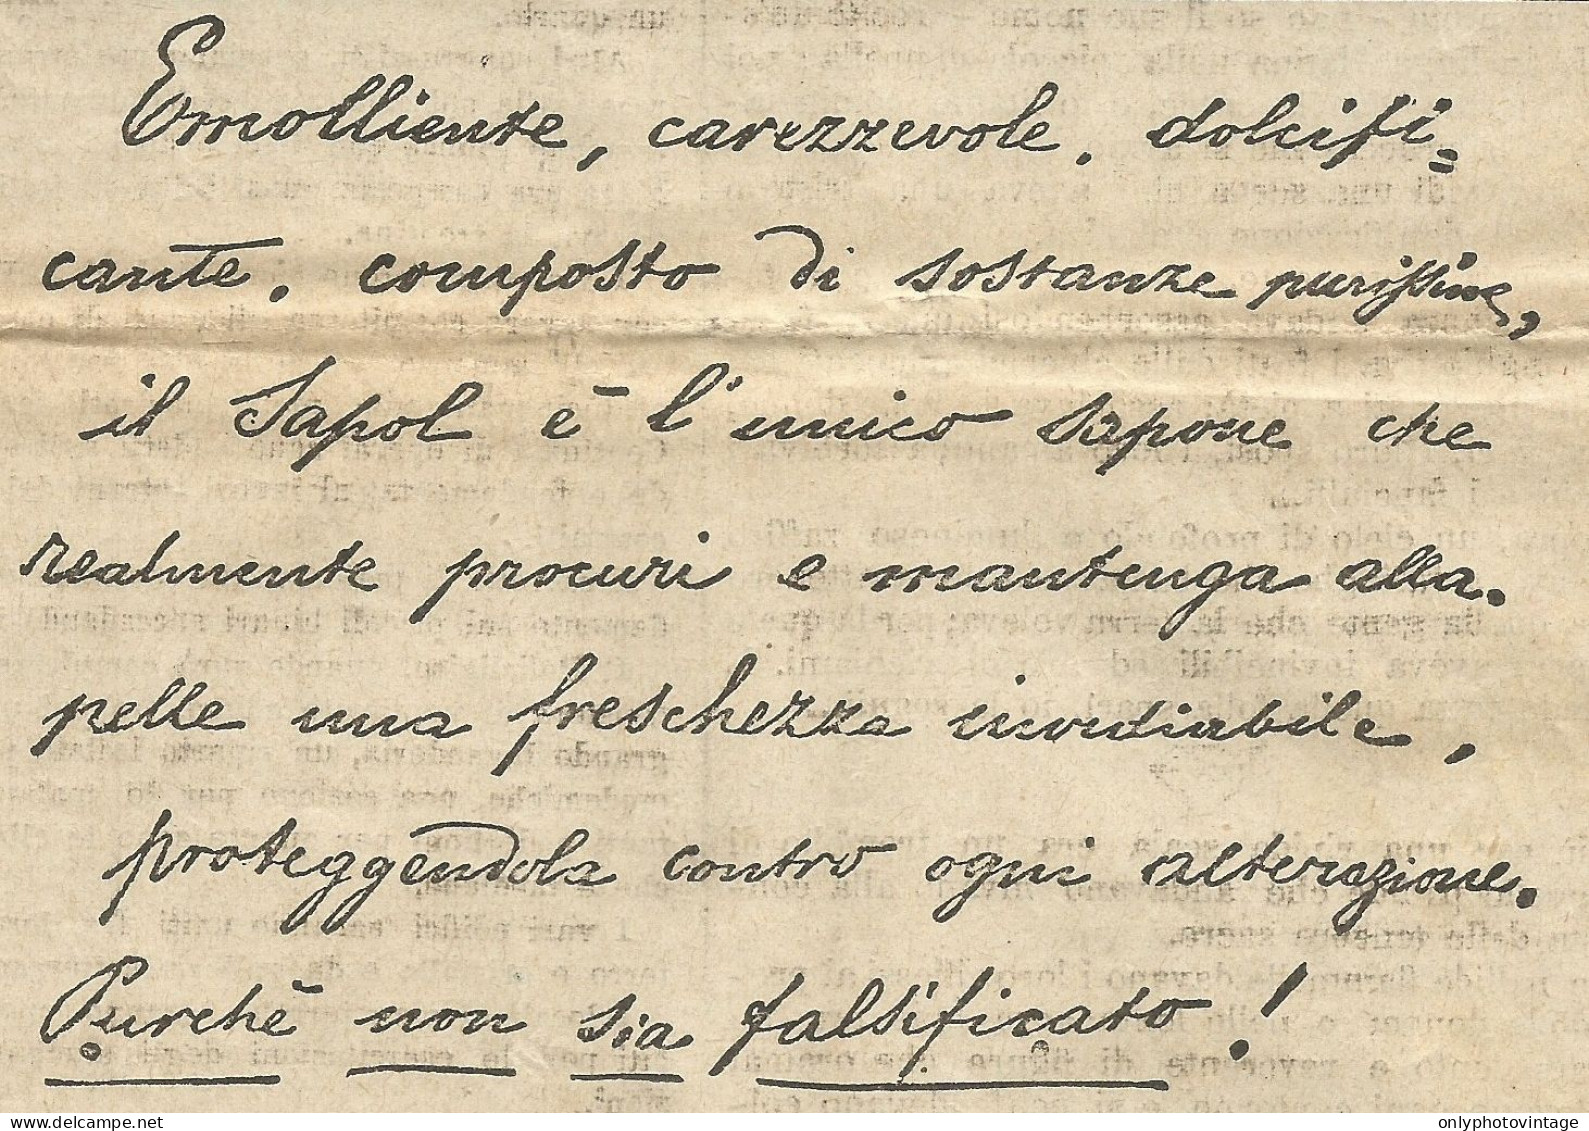 Emolliente, carezzevole, dolcifi=
cante, composto di sostanze purissime,
il Sapol è l'unico sapone che
realmente procuri e mantenga alla
pelle una freschezza invidiabile,
proteggendola contro ogni alterazione.
Purchè non sia falsificato!
onlyphotovintage